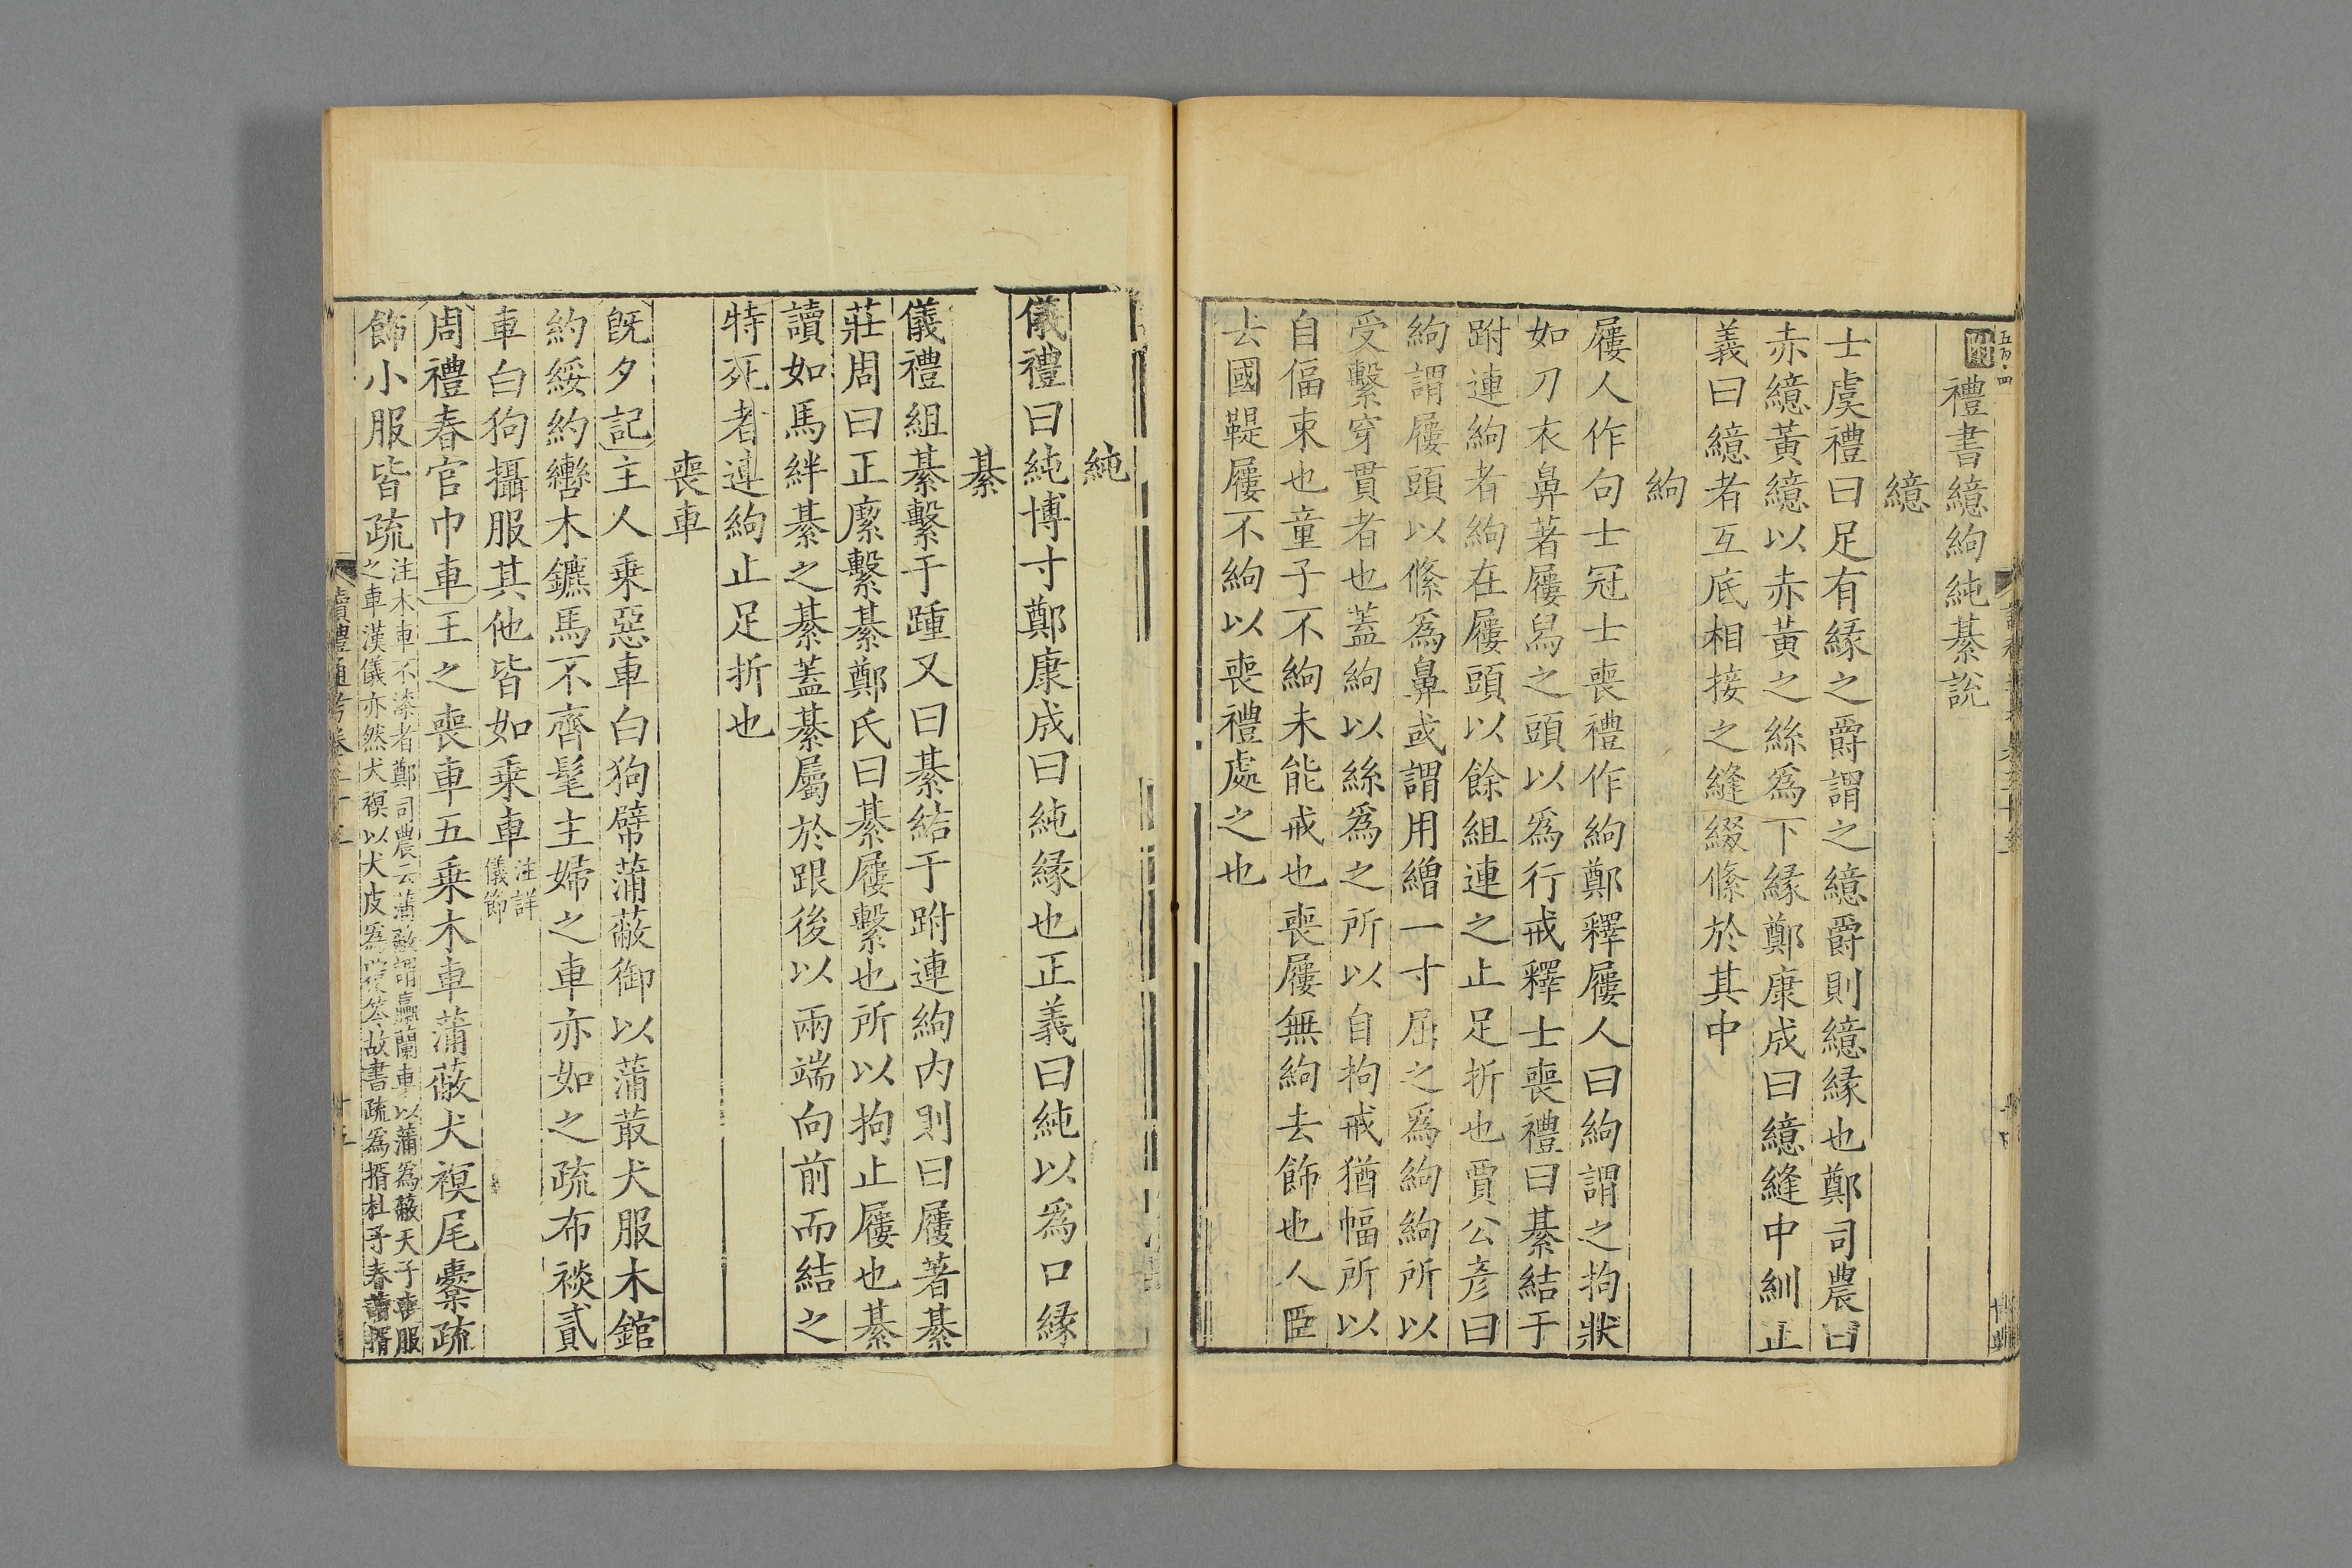 禮書繶絇純綦說
繶
士虞禮曰足有緣之爵謂之繶爵則繶緣也鄭司農曰
赤繶黃繶以赤黃之絲爲下緣鄭康成曰繶縫中紃正
義曰繶者互底相接之縫綴絛於其中
絇
屨人作句士冠士喪禮作絇鄭釋屨人曰絇謂之拘狀
如刀衣鼻著屨舄之頭以爲行戒釋士喪禮曰綦結于
跗連絇者絇在屨頭以餘組連之止足折也賈公彥曰
絇謂屨頭以絛爲鼻或謂用繒一寸屈之爲絇絇所以
受繫穿貫者也蓋絇以絲爲之所以自拘戒猶幅所以
自偪束也童子不絇未能戒也喪屨無絇去飾也人臣
去國鞮屨不絇以喪禮處之也
純
儀禮曰純博寸鄭康成曰純緣也正義曰純以爲口緣
綦
儀禮組綦繫于踵又曰綦結于跗連絇內則曰屨著綦
莊周曰正緳繫綦鄭氏曰綦屨繫也所以拘止屨也綦
讀如馬絆綦之綦蓋綦屬於跟後以兩端向前而結之
特死者連絇止足折也
喪車
既夕記主人乗惡車白狗幦蒲蔽御以蒲菆犬服木錧
約綏約轡木鑣馬不齊髦主婦之車亦如之疏布裧貳
車白狗攝服其他皆如乗車注詳儀節
周禮春官巾車王之喪車五乗木車蒲蔽犬𧜀尾櫜疏
飾小服皆疏注木車不漆者鄭司農云蒲蔽謂臝蘭車以蒲爲蔽天子喪服之車漢儀亦然犬𧜀以犬皮爲覆笭故書疏爲揟杜子春讀揟
讀禮通考卷三十五
十五